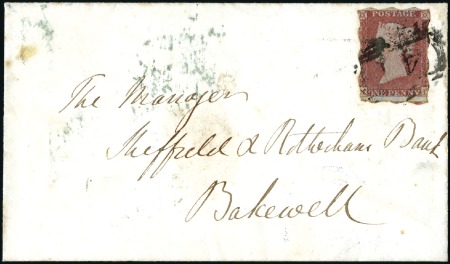 POSTAGE
ONE PENNY
The Manager
Sheffield & Rotherham Bank
Bakewell